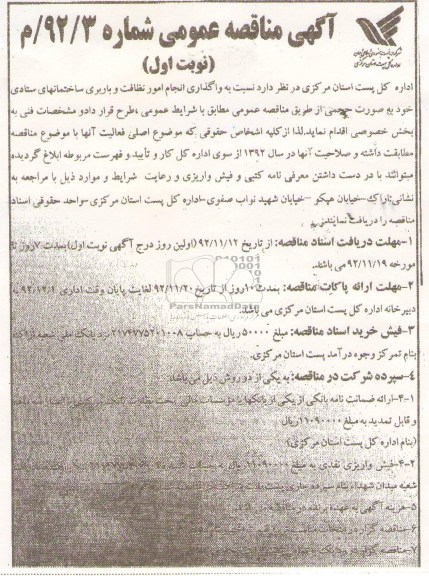 آگهی مناقصه عمومی شماره ۹۲/۳/م
(نوبت اول)
اداره کل پست استان مرکزی در نظر دارد نسبت به واگذاری انجام امور نظافت و باربری ساختمانهای ستادی
خود به صورت حجمی از طریق مناقصه عمومی مطابق با شرایط عمومی ،طرح قرار دادو مشخصات فنی به
بخش خصوصی اقدام نماید.لذا ازکلیه اشخاص حقوقی که موضوع اصلی فعالیت آنها با موضوع مناقصه
مطابقت داشته و صلاحیت آنها در سال ۱۳۹۲ از سوی اداره کل کار و تأیید و فهرست مربوطه ابلاغ گردیده
میتوانند با در دست داشتن معرفی نامه کتبی و فیش واریزی و رعایت شرایط و موارد ذیل با مراجعه به
نشانی:اراک-خیابان هپکو -خیابان شهید نواب صفوی-اداره کل پست استان مرکزی-واحد حقوقی اسناد
مناقصه را دریافت نمایند.
۱-مهلت دریافت اسناد مناقصه: از تاریخ ۹۲/۱۱/۱۲ (اولین روز درج آگهی نوبت اول)بمدت ۷روز تا
مورخه ۹۲/۱۱/۱۹ می باشد.
ParsNamadData
۲-مهلت ارائه پاکات مناقصه: بمدت ۱۰روز از تاریخ ۹۲/۱۱/۲۰ لغایت پایان وقت اداری ۹۲/۱۲/۱ به
دبیرخانه اداره کل پست استان مرکزی می باشد.
۳-فیش خرید اسناد مناقصه: مبلغ ۵۰۰۰۰ ریال به حساب ۲۱۷۴۷۷۵۲۰۱۰۰۸ نزد بانک ملی شعبه اراک
بنام تمرکز وجوه درآمد پست استان مرکزی.
۴-سپرده شرکت در مناقصه: به یکی از دو روش ذیل می باشد
۴-۱-ارائه ضمانت نامه بانکی از یکی از بانکها
و قابل تمدید به مبلغ ۱۱۰۹۰۰۰۰ ریال
(بنام اداره کل پست استان مرکزی)
۴-۲-فیش واریزی نقدی به مبلغ ۱۱۰۹۰۰۰۰ ریال به حساب
شعبه میدان شهداء بنام سپرده
۵-هزینه آگهی به عهده برنده
۶-مناقصه گزار
۷-مناقصه گزار